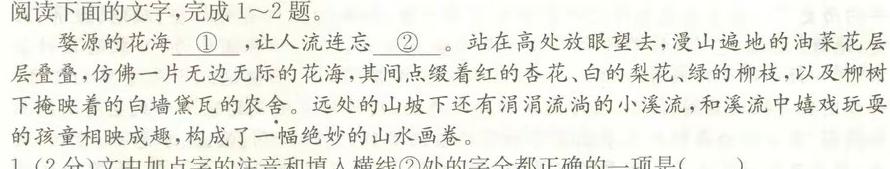 阅读下面的文字,完成1~2题。
婺源的花海 ① ,让人流连忘 ② 。站在高处放眼望去,漫山遍地的油菜花层
层叠叠,仿佛一片无边无际的花海,其间点缀着红的杏花、白的梨花、绿的柳枝,以及柳树
下掩映着的白墙黛瓦的农舍。远处的山坡下还有涓涓流淌的小溪流,和溪流中嬉戏玩耍
的孩童相映成趣,构成了一幅绝妙的山水画卷。
1.(2分)文中加点字的注音和填入横线②处的字全都正确的一项是( )